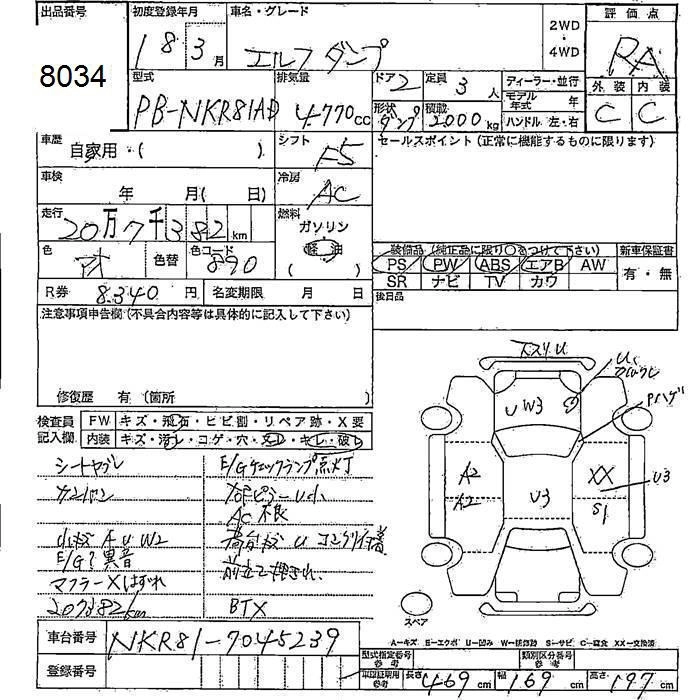 出品番号 初度登録年月 車名・グレード 2WD・4WD 評価点
8034 18 3月 エルフダンプ RA
型式 排気量 ドア 2 定員 3人 ディーラー・並行 外装 内装
PB-NKR81AD 4770cc 形状 ダンプ 積載 2000kg モデル年式 年 C C
ハンドル 左・右
車歴 自家用・( ) シフト F5 セールスポイント(正常に機能するものに限ります)
車検 年 月( 日) 冷房 AC
走行 20万7千382km 燃料 ガソリン 軽油 ( )
色 色替 色コード 890
装備品(純正品に限り○をつけて下さい) 新車保証書
PS PW ABS エアB AW 有・無
SR ナビ TV カワ
R券 8,340円 名変期限 月 日 後日品
注意事項申告欄(不具合内容等は具体的に記入して下さい)
修復歴 有(箇所 )
検査員記入欄 FW キズ・飛石・ヒビ割・リペア跡・X要
内装 キズ・汚レ・コゲ・穴・スレ・キレ・破レ
シートヤブレ E/Gチェックランプ点灯
カンバン
AC不良
AUW2 U
E/G異音
マフラーXはずれ
207382km BTX
U
UW3
A2 XX U3
A2 U3 S1
スペア
A=キズ E=エクボ U=凹み W=板跡 S=サビ C=腐食 XX=交換済
車台番号 NKR81-7045239
登録番号
型式指定番号 参考 類別区分番号 参考
車印証明用 参考 長さ 469cm 幅 169cm 高さ 197cm